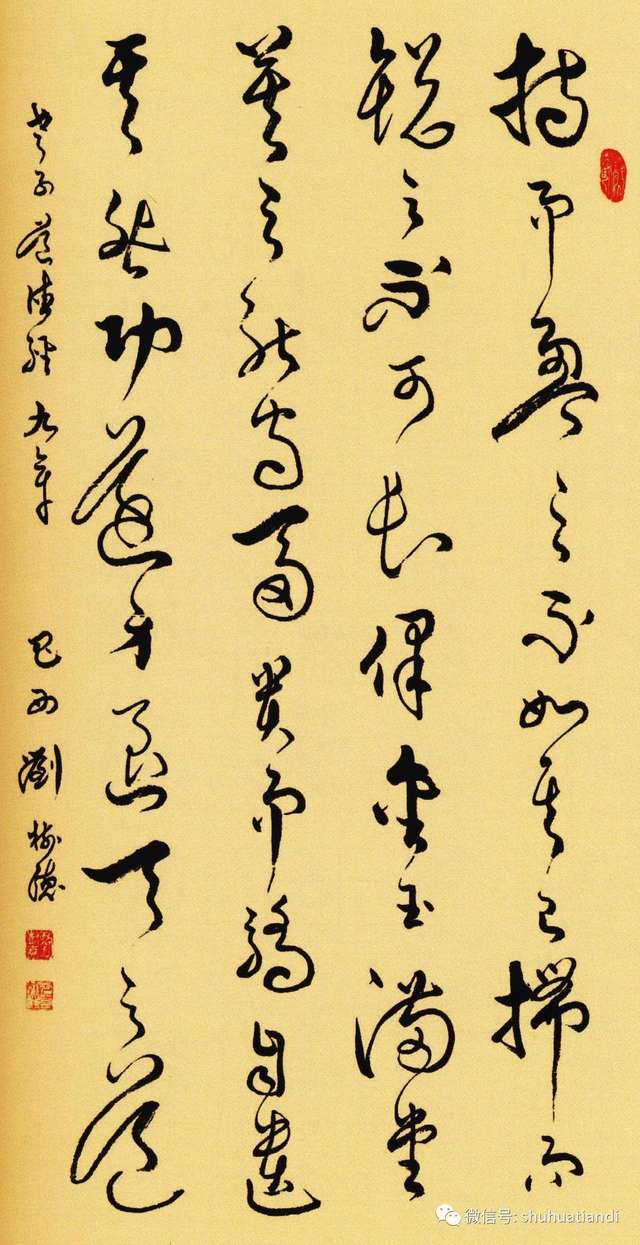 持而盈之不如其已揣而
銳之不可長保金玉滿堂
莫之能守富貴而驕自遺
其咎功遂身退天之道
老子道德經九章 劉
微信号: shuhuatiandi